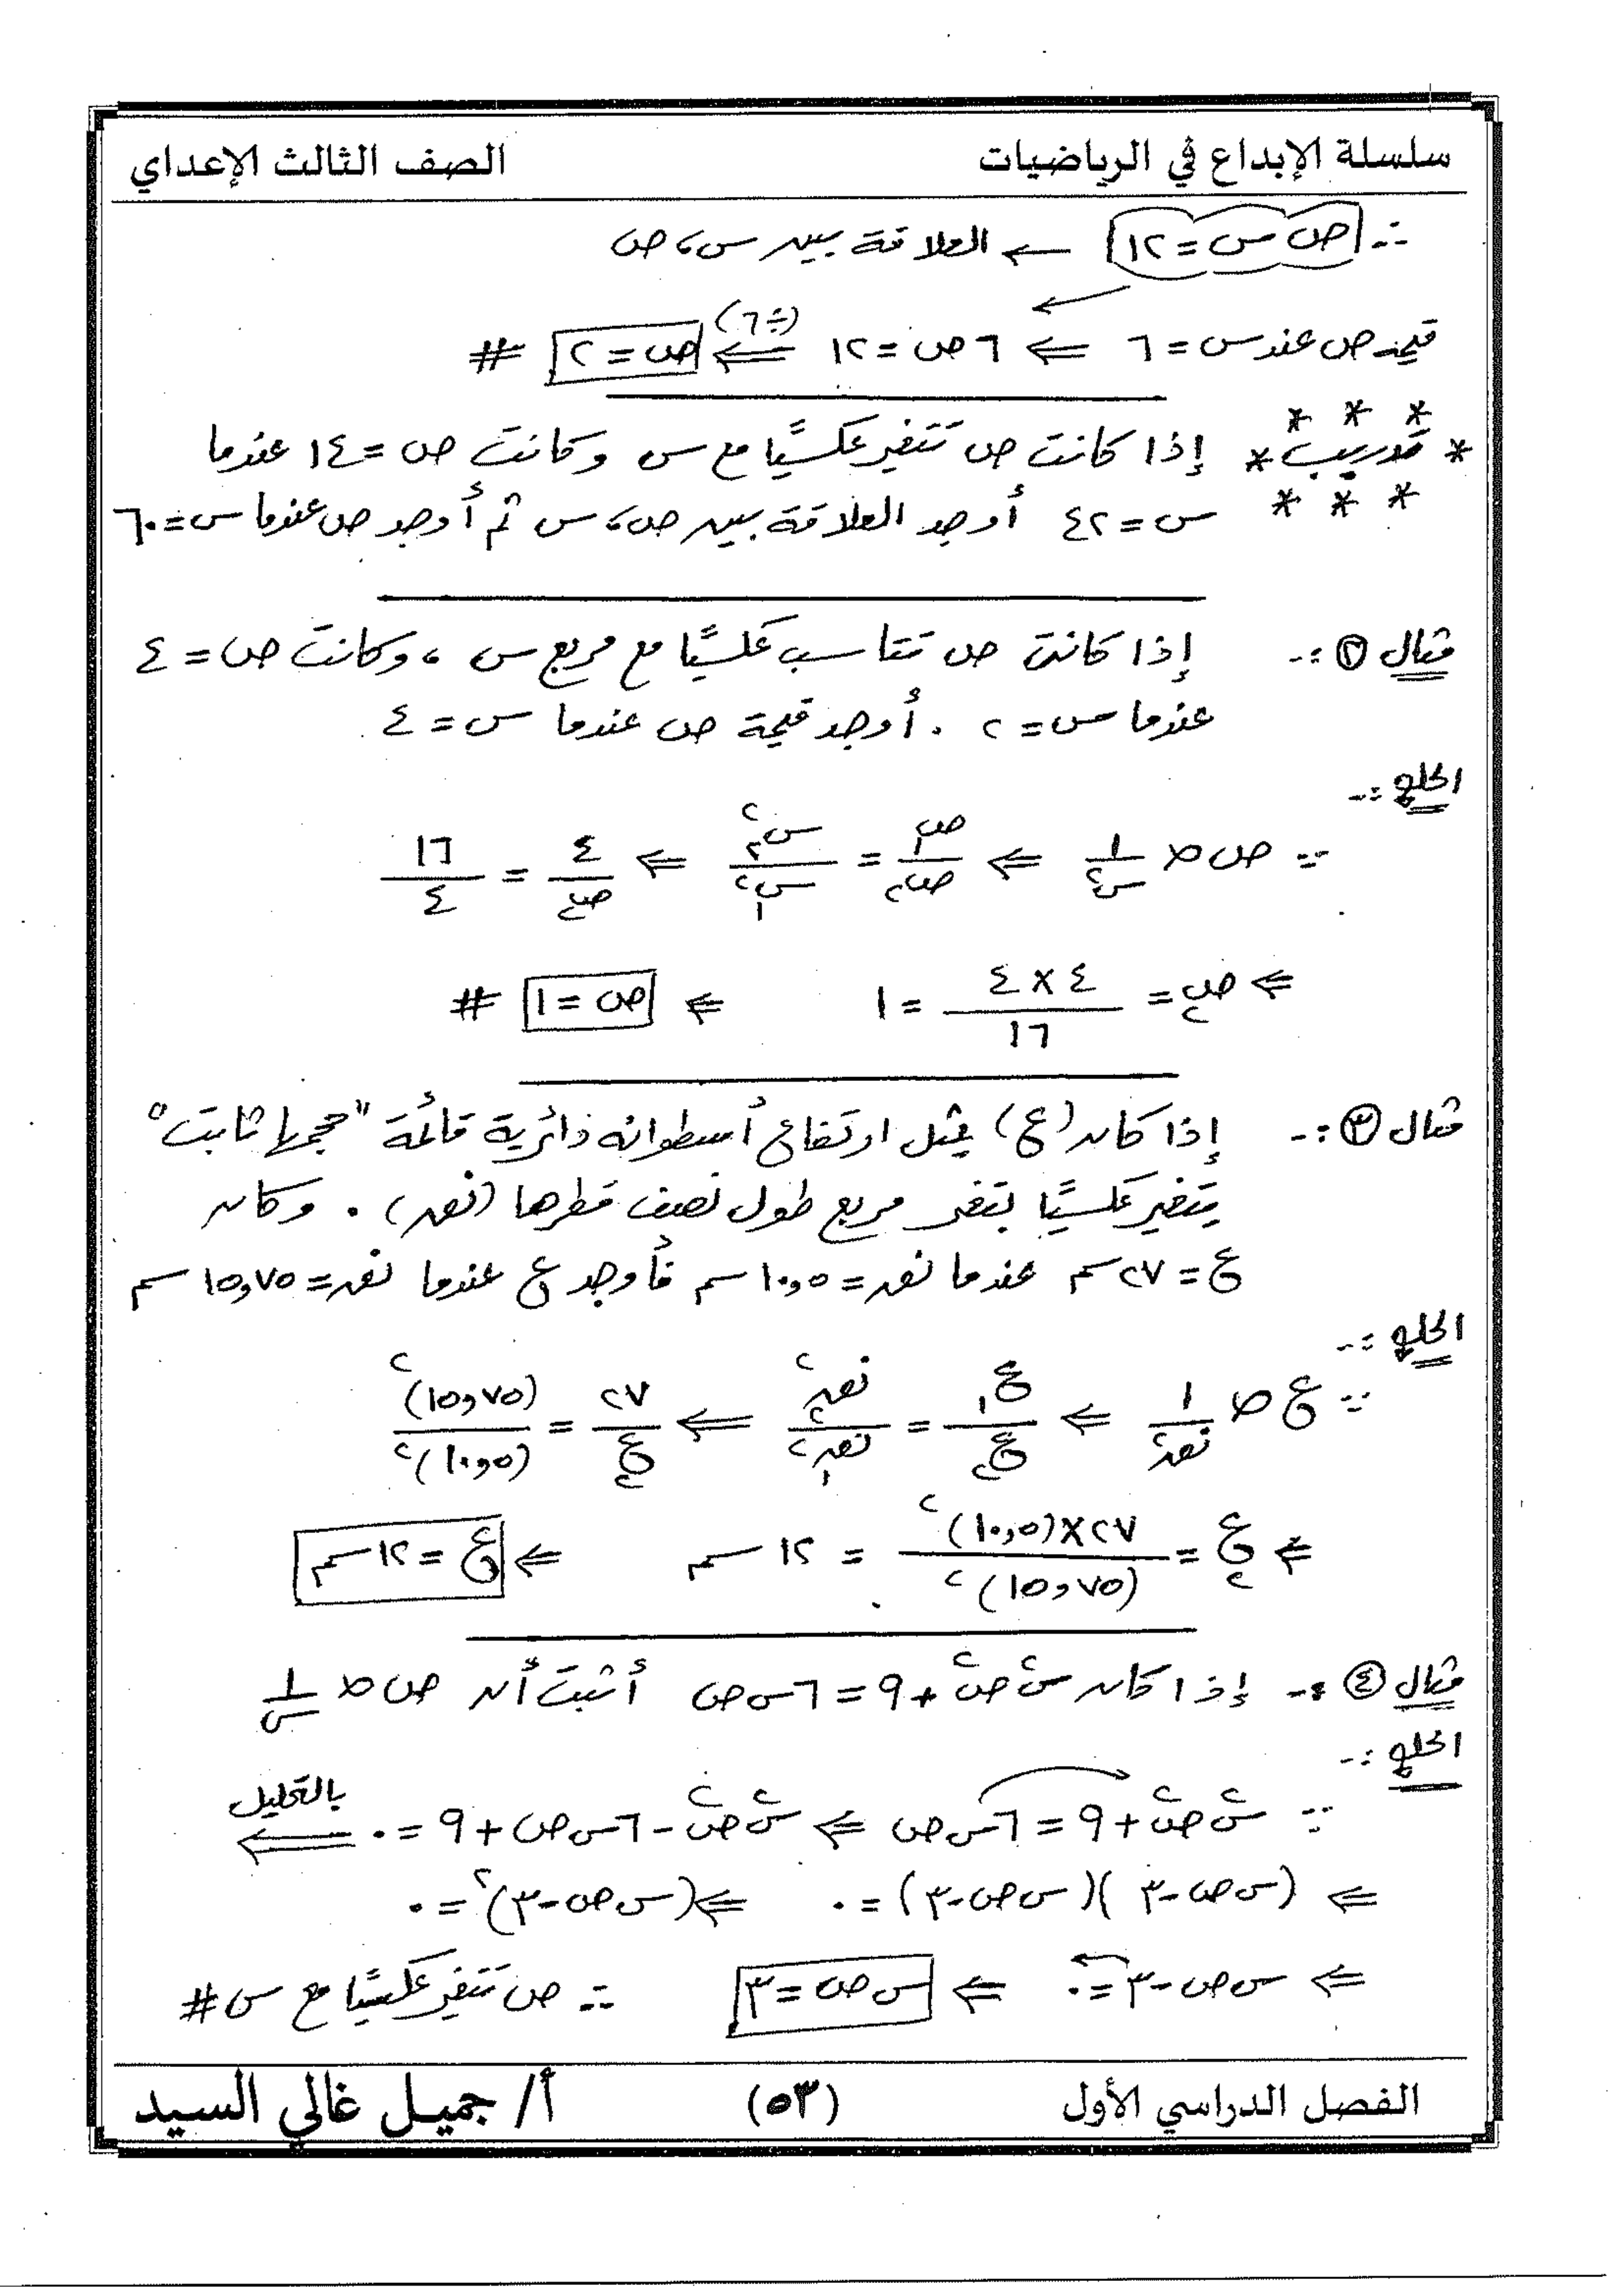 سلسلة الإبداع في الرياضيات الصف الثالث الإعداي
∴ ص س = ١٢ ← العلاقة بين س ، ص
قيمة ص عند س = ٦ ⇐ ٦ ص = ١٢ ⇐ (÷٦) ص = ٢ #
* تدريب * إذا كانت ص تتغير عكسيًا مع س وكانت ص = ١٤ عندما
س = ٤٢ أوجد العلاقة بين ص ، س ثم أوجد ص عندما س = ٦٠
مثال ٢ :- إذا كانت ص تتناسب عكسيًا مع مربع س ، وكانت ص = ٤
عندما س = ٢ . أوجد قيمة ص عندما س = ٤
الحل :-
∵ ص ∝ ١/س٢ ⇐ ص١/ص٢ = س٢٢/س١٢ ⇐ ٤/ص٢ = ١٦/٤
⇐ ص٢ = ٤ × ٤/١٦ = ١ ⇐ ص = ١ #
مثال ٣ :- إذا كان (ع) يمثل ارتفاع أسطوانه دائرية قائمة "حجمها ثابت"
يتغير عكسيًا بتغير مربع طول نصف قطرها (نص) . وكان
ع = ٢٧ سم عندما نص = ١٠,٥ سم فأوجد ع عندما نص = ١٥,٧٥ سم
الحل :-
∵ ع ∝ ١/نص٢ ⇐ ع١/ع٢ = نص٢٢/نص١٢ ⇐ ٢٧/ع٢ = (١٥,٧٥)٢/(١٠,٥)٢
⇐ ع٢ = ٢٧ × (١٠,٥)٢/(١٥,٧٥)٢ = ١٢ سم ⇐ ع = ١٢ سم
مثال ٤ :- إذا كان س٢ ص٢ + ٩ = ٦ س ص أثبت أن ص ∝ ١/س
الحل :-
∵ س٢ ص٢ + ٩ = ٦ س ص ⇐ س٢ ص٢ - ٦ س ص + ٩ = ٠ بالتحليل ⇐
⇐ (س ص - ٣)(س ص - ٣) = ٠ ⇐ (س ص - ٣)٢ = ٠
⇐ س ص - ٣ = ٠ ⇐ س ص = ٣ ∴ ص تتغير عكسيًا مع س #
الفصل الدراسي الأول (٥٣) أ/ جميل غالي السيد